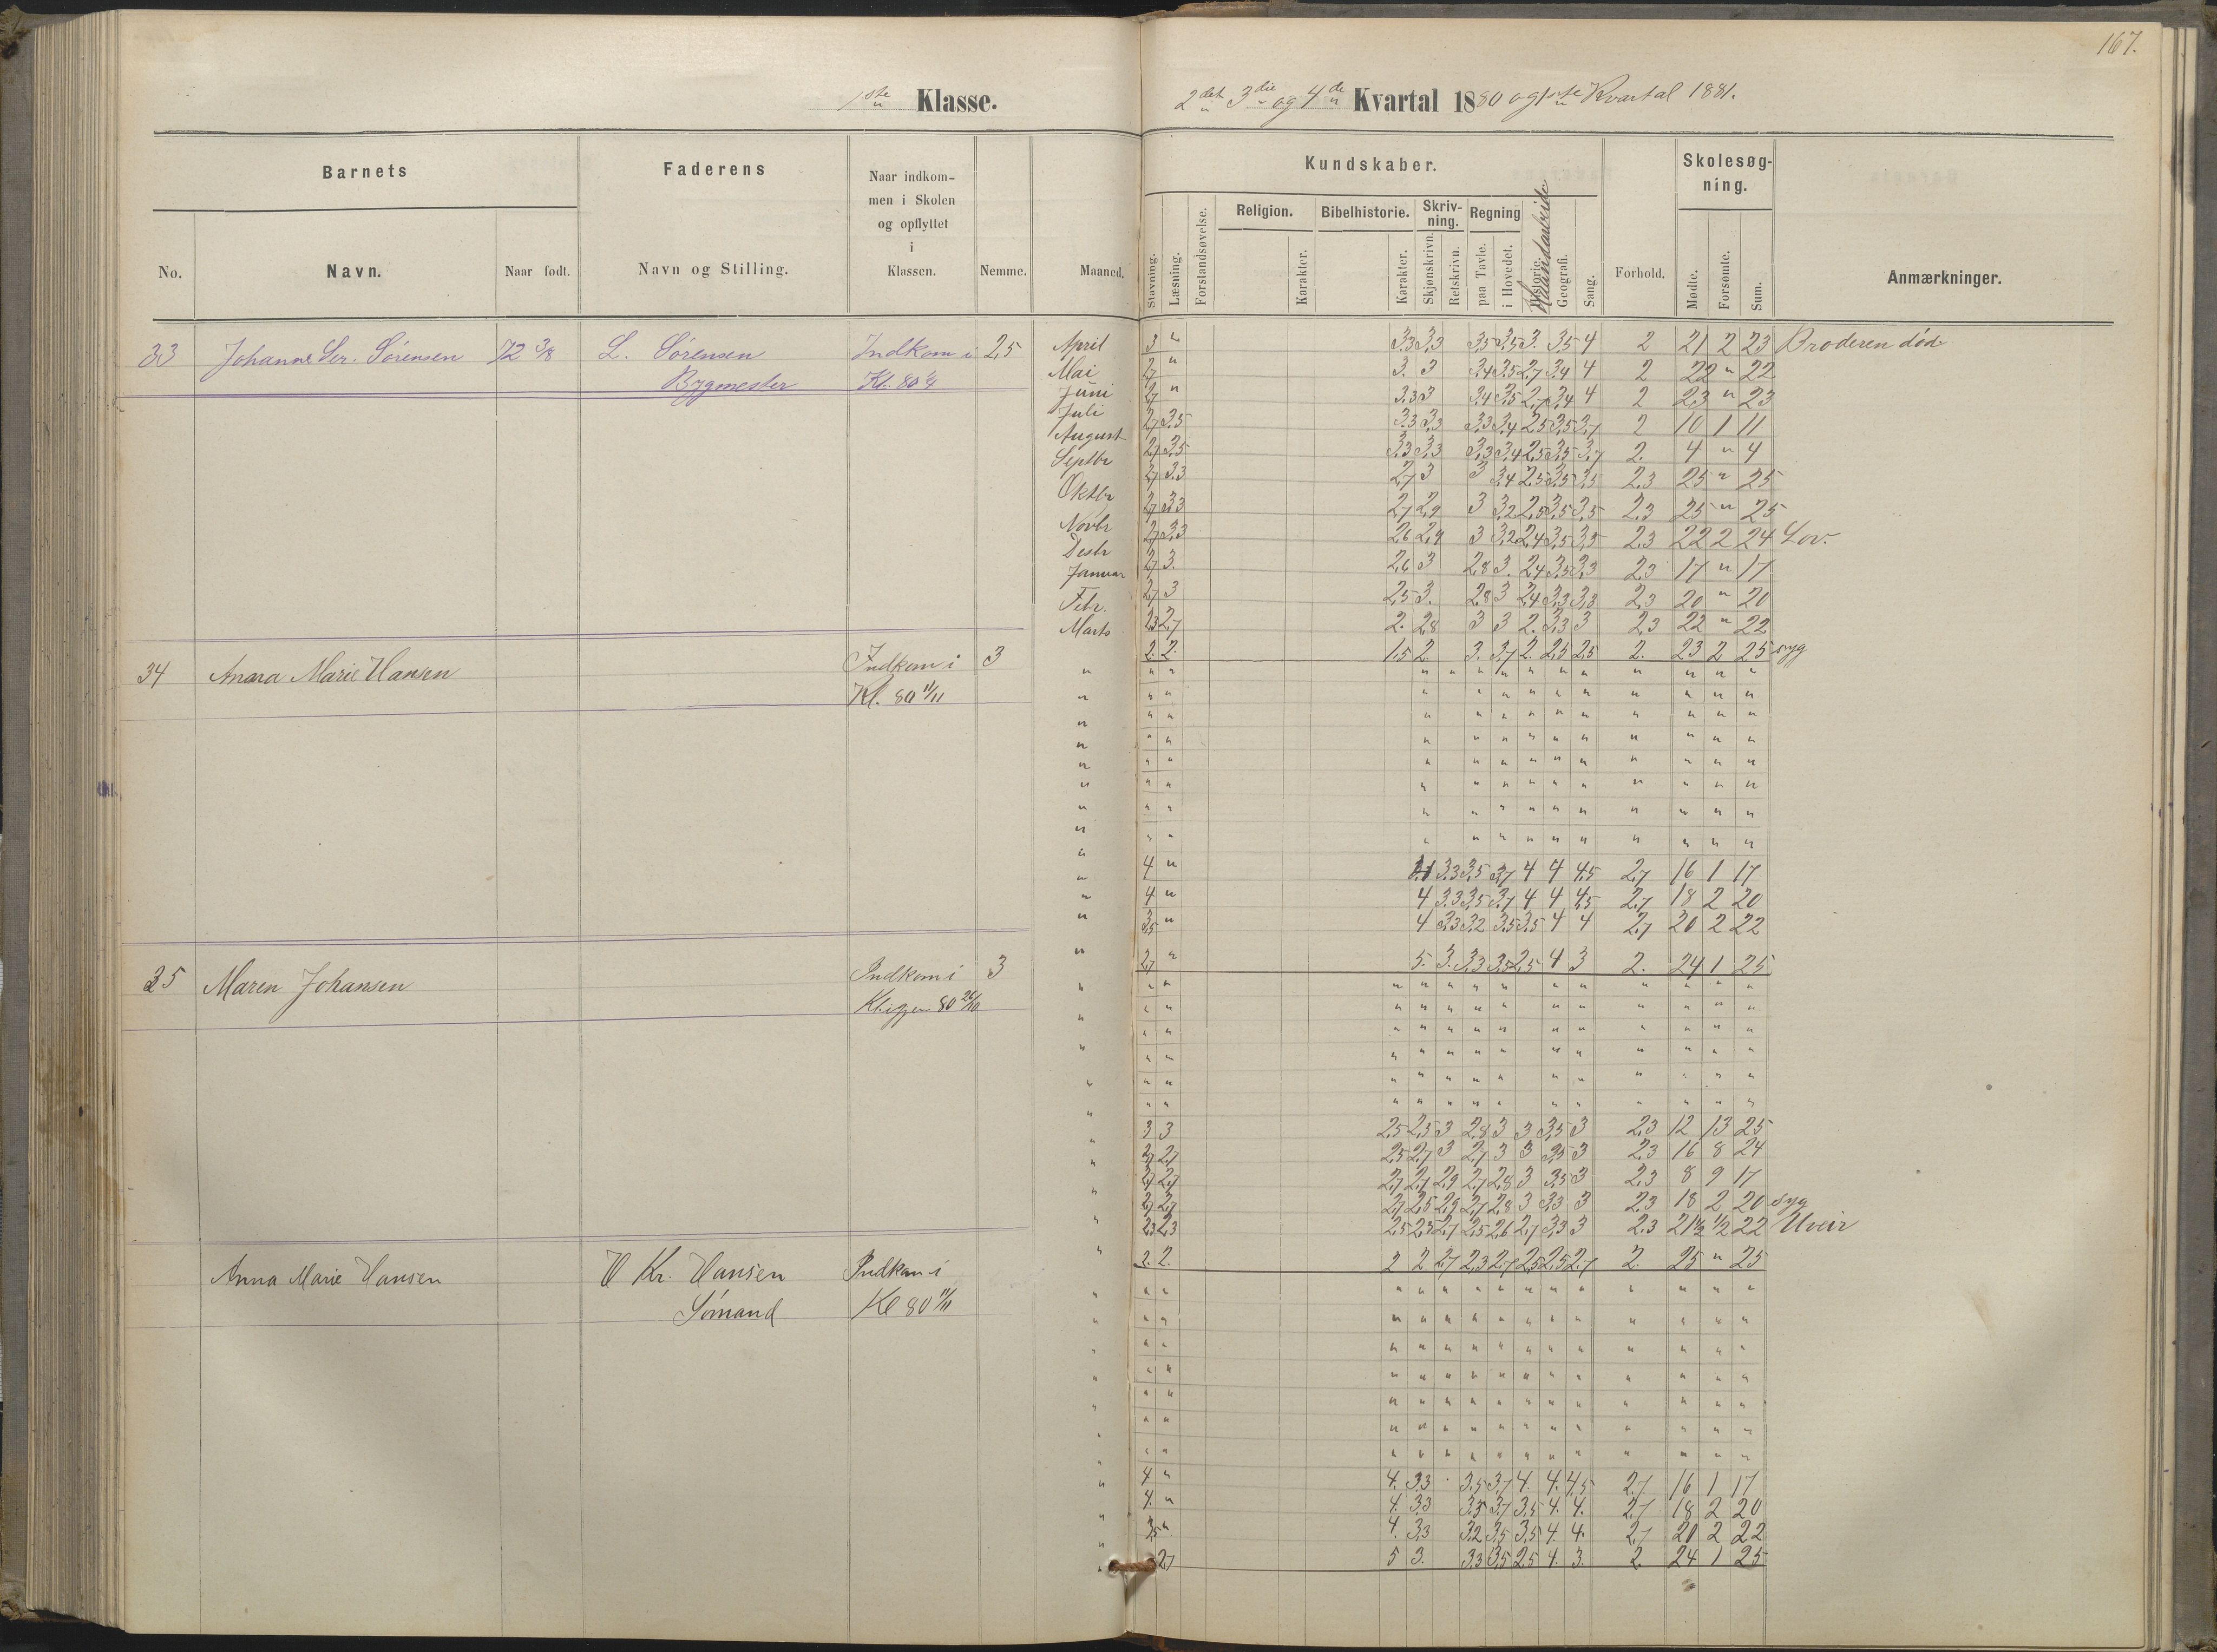 167.
1ste Klasse.
2det 3die og 4de Kvartal 1880 og 1ste Kvartal 1881.
Barnets
Faderens
Naar indkom-
men i Skolen
og opflyttet
i
Klassen.
Kundskaber.
Skolesøg-
ning.
Religion. Bibelhistorie. Skriv-
ning. Regning
No. Navn. Naar født. Navn og Stilling. Nemme. Maaned. Stavning. Læsning. Forstandsøvelse. Karakter. Karakter. Skjønskrivn. Retskrivn. paa Tavle. i Hovedet. Historie. Haandarbeide Geografi. Sang. Forhold. Mødte. Forsømte. Sum. Anmærkninger.
33 Johanne Ser. Sørensen 72 3/8 L. Sørensen Indkom i 2,5
Bygmester Kl. 80 1/4
April 3 " 3,3 3,3 3,5 3,5 3. 3,5 4 2 21 2 23 Broderen död
Mai 2,7 " 3. 3 3,4 3,5 2,7 3,4 4 2 22 " 22
Juni 2,7 " 3,3 3 3,4 3,5 2,7 3,4 4 2 23 " 23
Juli 2,7 3,5 3,3 3,3 3,3 3,4 2,5 3,5 3,7 2 10 1 11
August 2,7 3,5 3,3 3,3 3,3 3,4 2,5 3,5 3,7 2. 4 " 4
Septbr 2,7 3,3 2,7 3 3 3,4 2,5 3,5 3,5 2,3 25 " 25
Oktbr 2,7 3,3 2,7 2,9 3 3,2 2,5 3,5 3,5 2,3 25 " 25
Novbr 2,7 3,3 2,6 2,9 3 3,2 2,4 3,5 3,5 2,3 22 2 24 Lov.
Desbr 2,7 3. 2,6 3 2,8 3. 2,4 3,5 3,3 2,3 17 " 17
Januar 2,7 3 2,5 3. 2,8 3 2,4 3,3 3,3 2,3 20 " 20
Febr. 2,3 2,7 2. 2,8 3 3 2. 3,3 3 2,3 22 " 22
Marts 2. 2. 1,5 2. 3. 3,7 2. 2,5 2,5 2. 23 2 25 syg
34 Anna Marie Hansen Indkom i 3
Kl. 80 11/11
4 " 3,3 3,5 3,7 4 4 4,5 2,7 16 1 17
4 " 4 3,3 3,5 3,7 4 4 4,5 2,7 18 2 20
3,5 " 4 3,3 3,2 3,5 3,5 4 4 2,7 20 2 22
2,7 " 5. 3. 3,3 3,5 2,5 4 3 2. 24 1 25
35 Maren Johansen Indkom i 3
Kl. igjen 80 26/10
3 3 2,5 2,5 3 2,8 3 3 3,5 3 2,3 12 13 25
2,7 2,7 2,5 2,7 3 2,7 3 3 3,5 3 2,3 16 8 24
2,7 2,7 2,7 2,7 2,9 2,7 2,8 3 3,5 3 2,3 8 9 17
2,7 2,7 2,7 2,5 2,9 2,7 2,8 3 3,3 3 2,3 18 2 20 syg
2,3 2,3 2,5 2,3 2,7 2,5 2,6 2,7 3,3 3 2,3 21 1/2 1/2 22 Uveir
2. 2. 2 2 2,7 2,3 2,7 2,5 2,5 2,7 2. 25 " 25
Anna Marie Hansen H Kr. Hansen Indkom i
Sömand Kl 80 11/11
4 " 4. 3,3 3,5 3,7 4. 4. 4,5 2,7 16 1 17
4. " 4. 3,3 3,5 3,7 3,5 4. 4. 2,7 18 2 20
3,5 " 4. 3,3 3,2 3,5 3,5 4 4. 2,7 20 2 22
2,7 5 3. 3,3 3,5 2,5 4. 3. 2. 24 1 25